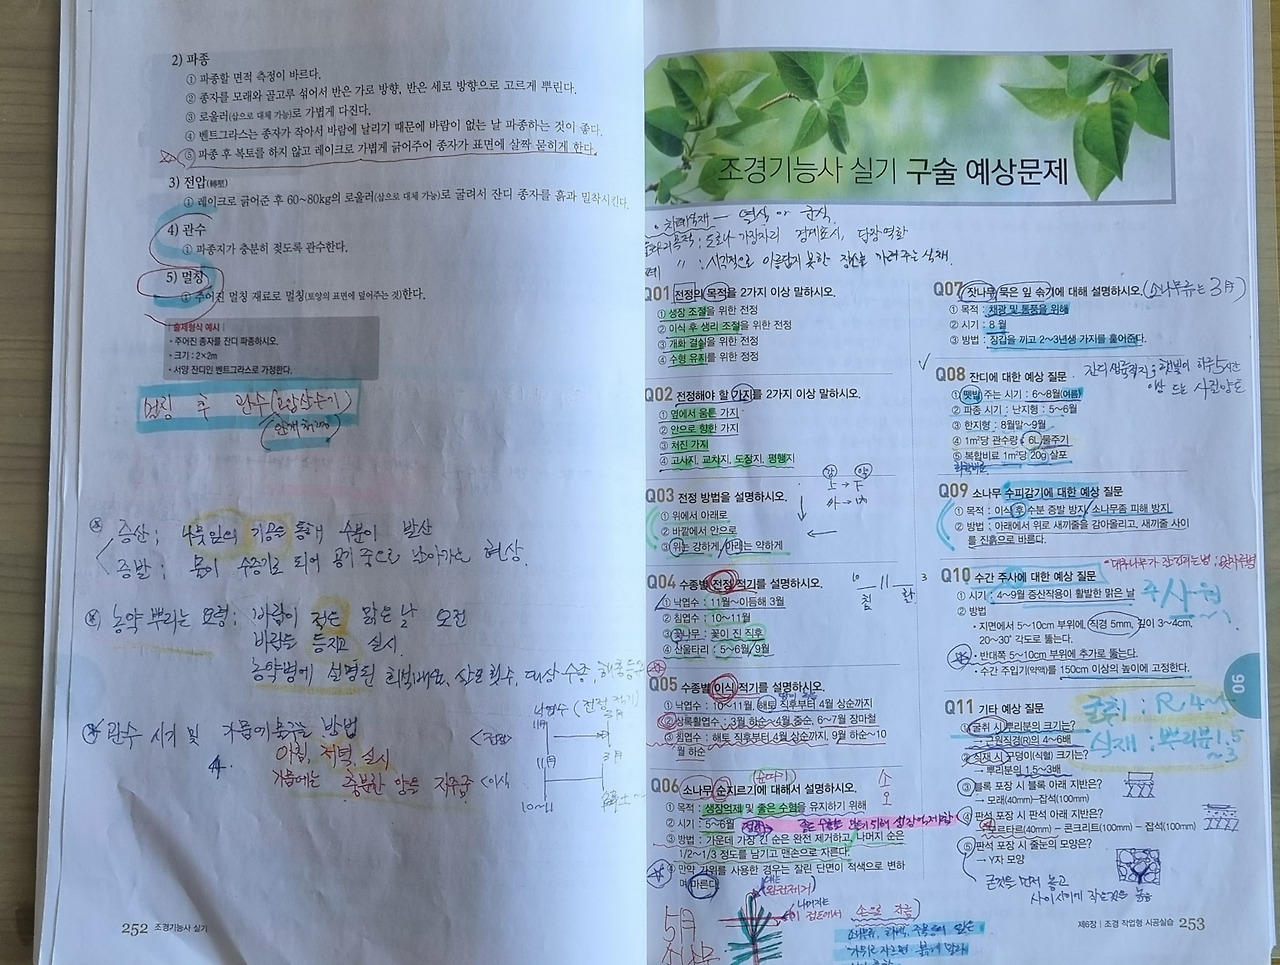 2) 파종
① 파종할 면적 측정이 바르다.
② 종자를 모래와 골고루 섞어서 반은 가로 방향, 반은 세로 방향으로 고르게 뿌린다.
③ 로울러(삽으로 대체 가능)로 가볍게 다진다.
④ 벤트그라스는 종자가 작아서 바람에 날리기 때문에 바람이 없는 날 파종하는 것이 좋다.
⑤ 파종 후 복토를 하지 않고 레이크로 가볍게 긁어주어 종자가 표면에 살짝 묻히게 한다.
3) 전압(轉壓)
① 레이크로 긁어준 후 60~80kg의 로울러(삽으로 대체 가능)로 굴려서 잔디 종자를 흙과 밀착시킨다.
4) 관수
① 파종지가 충분히 젖도록 관수한다.
5) 멀칭
① 주어진 멀칭 재료로 멀칭(토양의 표면에 덮어주는 것)한다.
출제형식 예시
• 주어진 종자를 잔디 파종하시오.
• 크기 : 2×2m
• 서양 잔디인 벤트그라스로 가정한다.
멀칭 후 관수
증산; 나뭇잎의 기공을 통해 수분이 발산
증발; 물이 수증기로 되어 공기 중으로 날아가는 현상.
농약 뿌리는 요령: 바람이 적은 맑은 날 오전
바람을 등지고 실시.
농약병에 설명된 희석배수, 살포횟수, 대상 수종, 해충
관수 시기 및 가뭄에 물주는 방법
아침, 저녁 실시
가뭄에는 충분한 양을 지주급
낙엽수 (전정 적기)
<전정>
11月
3月
<이식
11月
3月
10~11
252 조경기능사 실기
조경기능사 실기 구술 예상문제
차폐식재 — 열식 or 군식.
목적 : 도로나 가장자리 경계표시, 담장역할
〃 : 시각적으로 아름답지 못한 장소를 가려주는 식재.
Q01 전정의 목적을 2가지 이상 말하시오.
① 생장 조절을 위한 전정
② 이식 후 생리 조절을 위한 전정
③ 개화 결실을 위한 전정
④ 수형 유지를 위한 정정
Q02 전정해야 할 가지를 2가지 이상 말하시오.
① 옆에서 움튼 가지
② 안으로 향한 가지
③ 처진 가지
④ 고사지, 교차지, 도장지, 평행지
Q03 전정 방법을 설명하시오.
① 위에서 아래로
② 바깥에서 안으로
③ 위는 강하게, 아래는 약하게
강 약
上→下
外→内
Q04 수종별 전정 적기를 설명하시오.
① 낙엽수 : 11월~이듬해 3월
② 침엽수 : 10~11월
③ 꽃나무 : 꽃이 진 직후
④ 산울타리 : 5~6월/9월
10 11 3
침 활
Q05 수종별 이식 적기를 설명하시오.
① 낙엽수 : 10~11월, 해토 직후부터 4월 상순까지
② 상록활엽수 : 3월 하순~4월 중순, 6~7월 장마철
③ 침엽수 : 해토 직후부터 4월 상순까지, 9월 하순~10
월 하순
Q06 소나무 순지르기에 대해서 설명하시오.
① 목적 : 생장억제 및 좋은 수형을 유지하기 위해
② 시기 : 5~6월
③ 방법 : 가운데 가장 긴 순은 완전 제거하고, 나머지 순은
1/2~1/3 정도를 남기고 맨손으로 자른다.
④ 만약 가위를 사용한 경우는 잘린 단면이 적색으로 변하
며 마른다.
완전제거
나머지는
손으로 자름
5月
소나무
Q07 잣나무 묵은 잎 솎기에 대해 설명하시오. (소나무류는 3月)
① 목적 : 채광 및 통풍을 위해
② 시기 : 8월
③ 방법 : 장갑을 끼고 2~3년생 가지를 훑어준다.
Q08 잔디에 대한 예상 질문
① 뗏밥 주는 시기 : 6~8월(여름)
② 파종 시기 : 난지형 : 5~6월
③ 한지형 : 8월말~9월
④ 1m²당 관수량 : 6L 물주기
⑤ 복합비료 1m²당 20g 살포
Q09 소나무 수피감기에 대한 예상 질문
① 목적 : 이식 후 수분 증발 방지/소나무좀 피해 방지
② 방법 : 아래에서 위로 새끼줄을 감아올리고, 새끼줄 사이
를 진흙으로 바른다.
Q10 수간 주사에 대한 예상 질문
① 시기 : 4~9월 증산작용이 활발한 맑은 날
② 방법
• 지면에서 5~10cm 부위에, 직경 5mm, 깊이 3~4cm,
20~30° 각도로 뚫는다.
• 반대쪽 5~10cm 부위에 추가로 뚫는다.
• 수간 주입기(약액)를 150cm 이상의 높이에 고정한다.
Q11 기타 예상 질문
① 굴취 시 뿌리분의 크기는?
→ 근원직경(R)의 4~6배
② 식재 시 구덩이(식혈) 크기는?
→ 뿌리분의 1.5~3배
③ 블록 포장 시 블록 아래 지반은?
→ 모래(40mm)-잡석(100mm)
④ 판석 포장 시 판석 아래 지반은?
→ 모르타르(40mm) - 콘크리트(100mm) - 잡석(100mm)
⑤ 판석 포장 시 줄눈의 모양은?
→ Y자 모양
굴취 : R 4~
식재 : 뿌리분 1.5
큰것을 먼저 놓고
사이사이에 작은것을 놓음
06
제6장 | 조경 작업형 시공실습 253